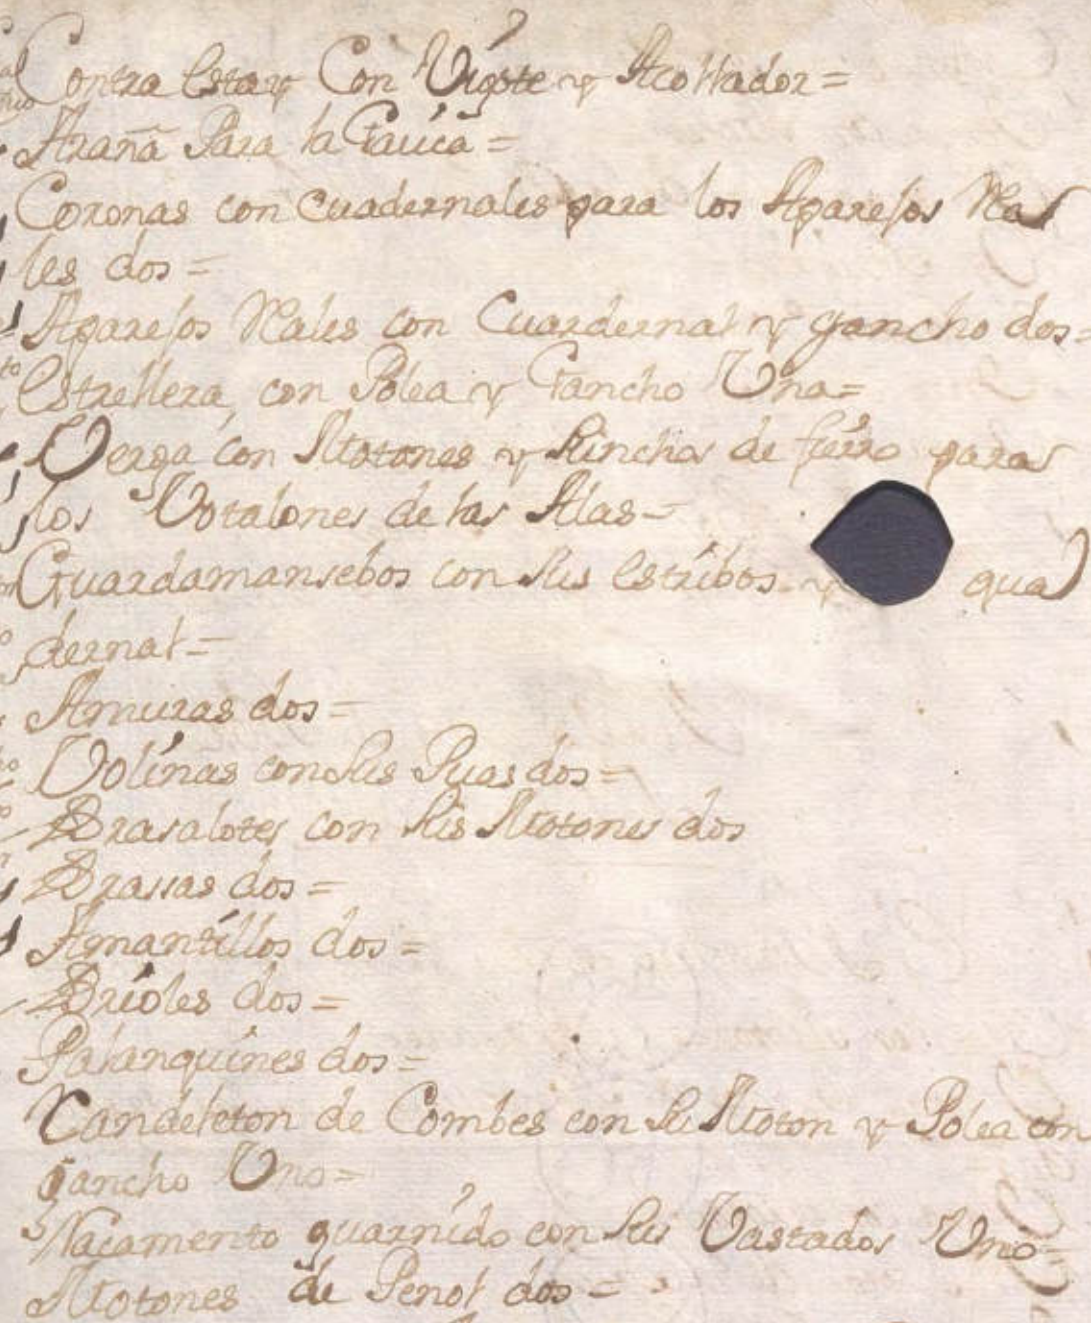 Contra estay Con Vigote y Acollador =
Araña Para la Gauia =
Coronas con Cuadernales para los Aparejos Rea
les dos =
Aparejos Reales con Cuardernal y gancho dos =
Estrellera con Polea y Gancho Una =
Verga con Motones y Sinchos de fierro para
los Votalones de las Alas =
Guardamansebos con Sus estribos y qua
dernal =
Amuras dos =
Volinas con Sus Puas dos =
Brasalotes con Sus Motones dos
Brasas dos =
Amantillos dos =
Brioles dos =
Palanquines dos =
Candeleton de Combes con Su Moton y Polea con
gancho Uno =
Racamento guarnido con Sus Vastados Uno =
Motones de Penol dos =